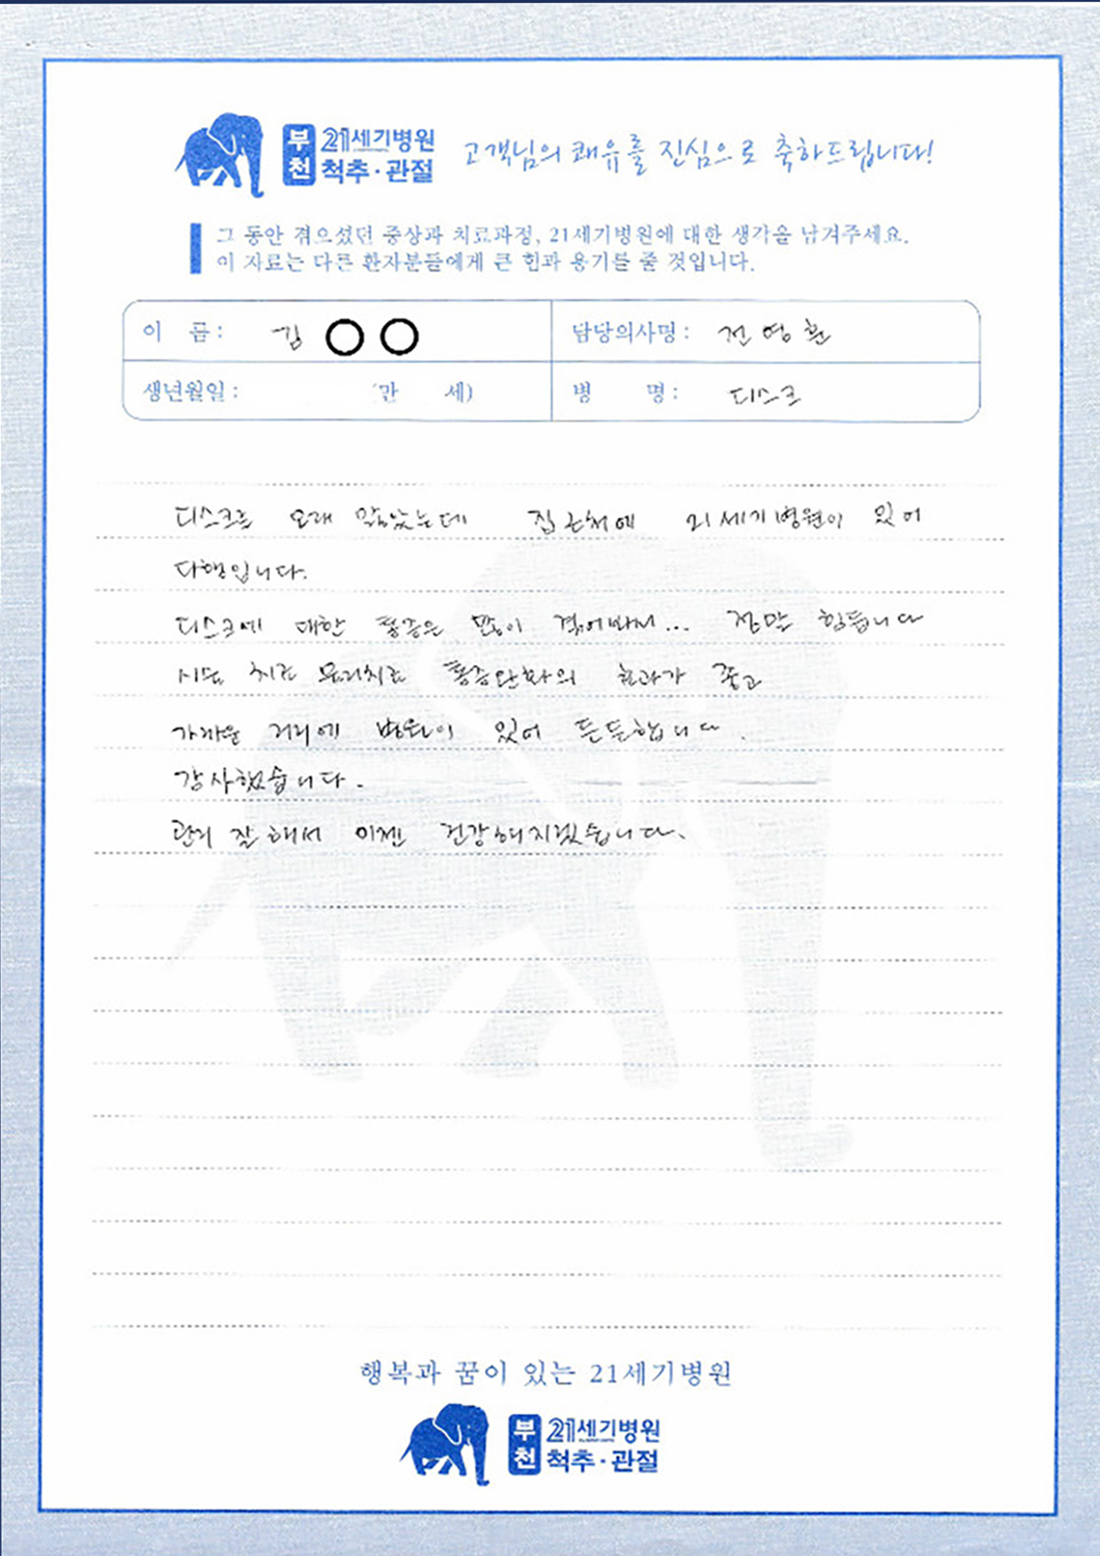 부천 21세기병원 척추·관절 고객님의 쾌유를 진심으로 축하드립니다!
그 동안 겪으셨던 증상과 치료과정, 21세기병원에 대한 생각을 남겨주세요.
이 자료는 다른 환자분들에게 큰 힘과 용기를 줄 것입니다.
이 름 : 김 ○ ○ 담당의사명 : 전영훈
생년월일 : (만 세) 병 명 : 디스크
디스크를 오래 앓았는데 집 근처에 21세기병원이 있어
다행입니다.
디스크에 대한 통증은 많이 겪어봐서... 정말 힘듭니다
시술 치료 물리치료 통증완화의 효과가 좋고
가까운 거리에 병원이 있어 든든합니다.
감사했습니다.
관리 잘해서 이젠 건강해지겠습니다.
행복과 꿈이 있는 21세기병원
부천 21세기병원 척추·관절